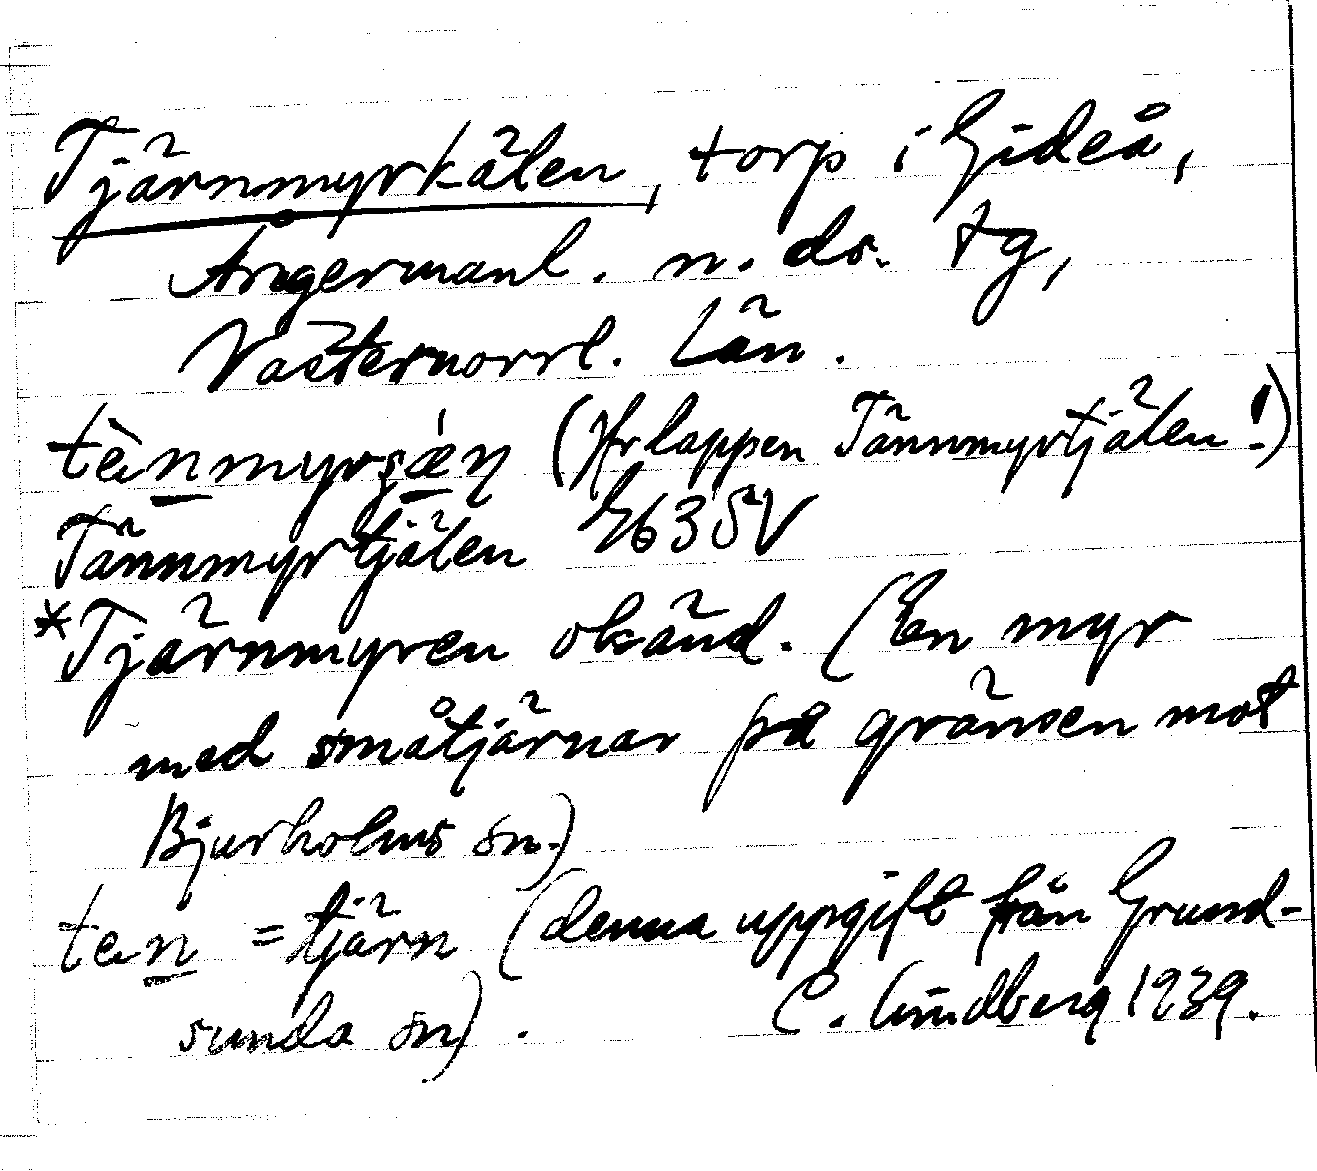 Tjärnmyrkälen, torp i Gideå,
Ångermanl. n. ds. tg,
Västernorrl. län.
(Jfr lappen Tännmyrtjälen!)
Tännmyrtjälen 2635V
*Tjärnmyren okänd. (En myr
med småtjärnar på gränsen mot
Bjurholms sn.)
ten = tjärn (denna uppgift från Grund-
sunda sn). C. Lindberg 1939.